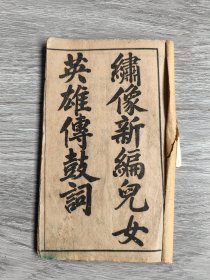 繡像新編兒女
英雄傳鼓詞